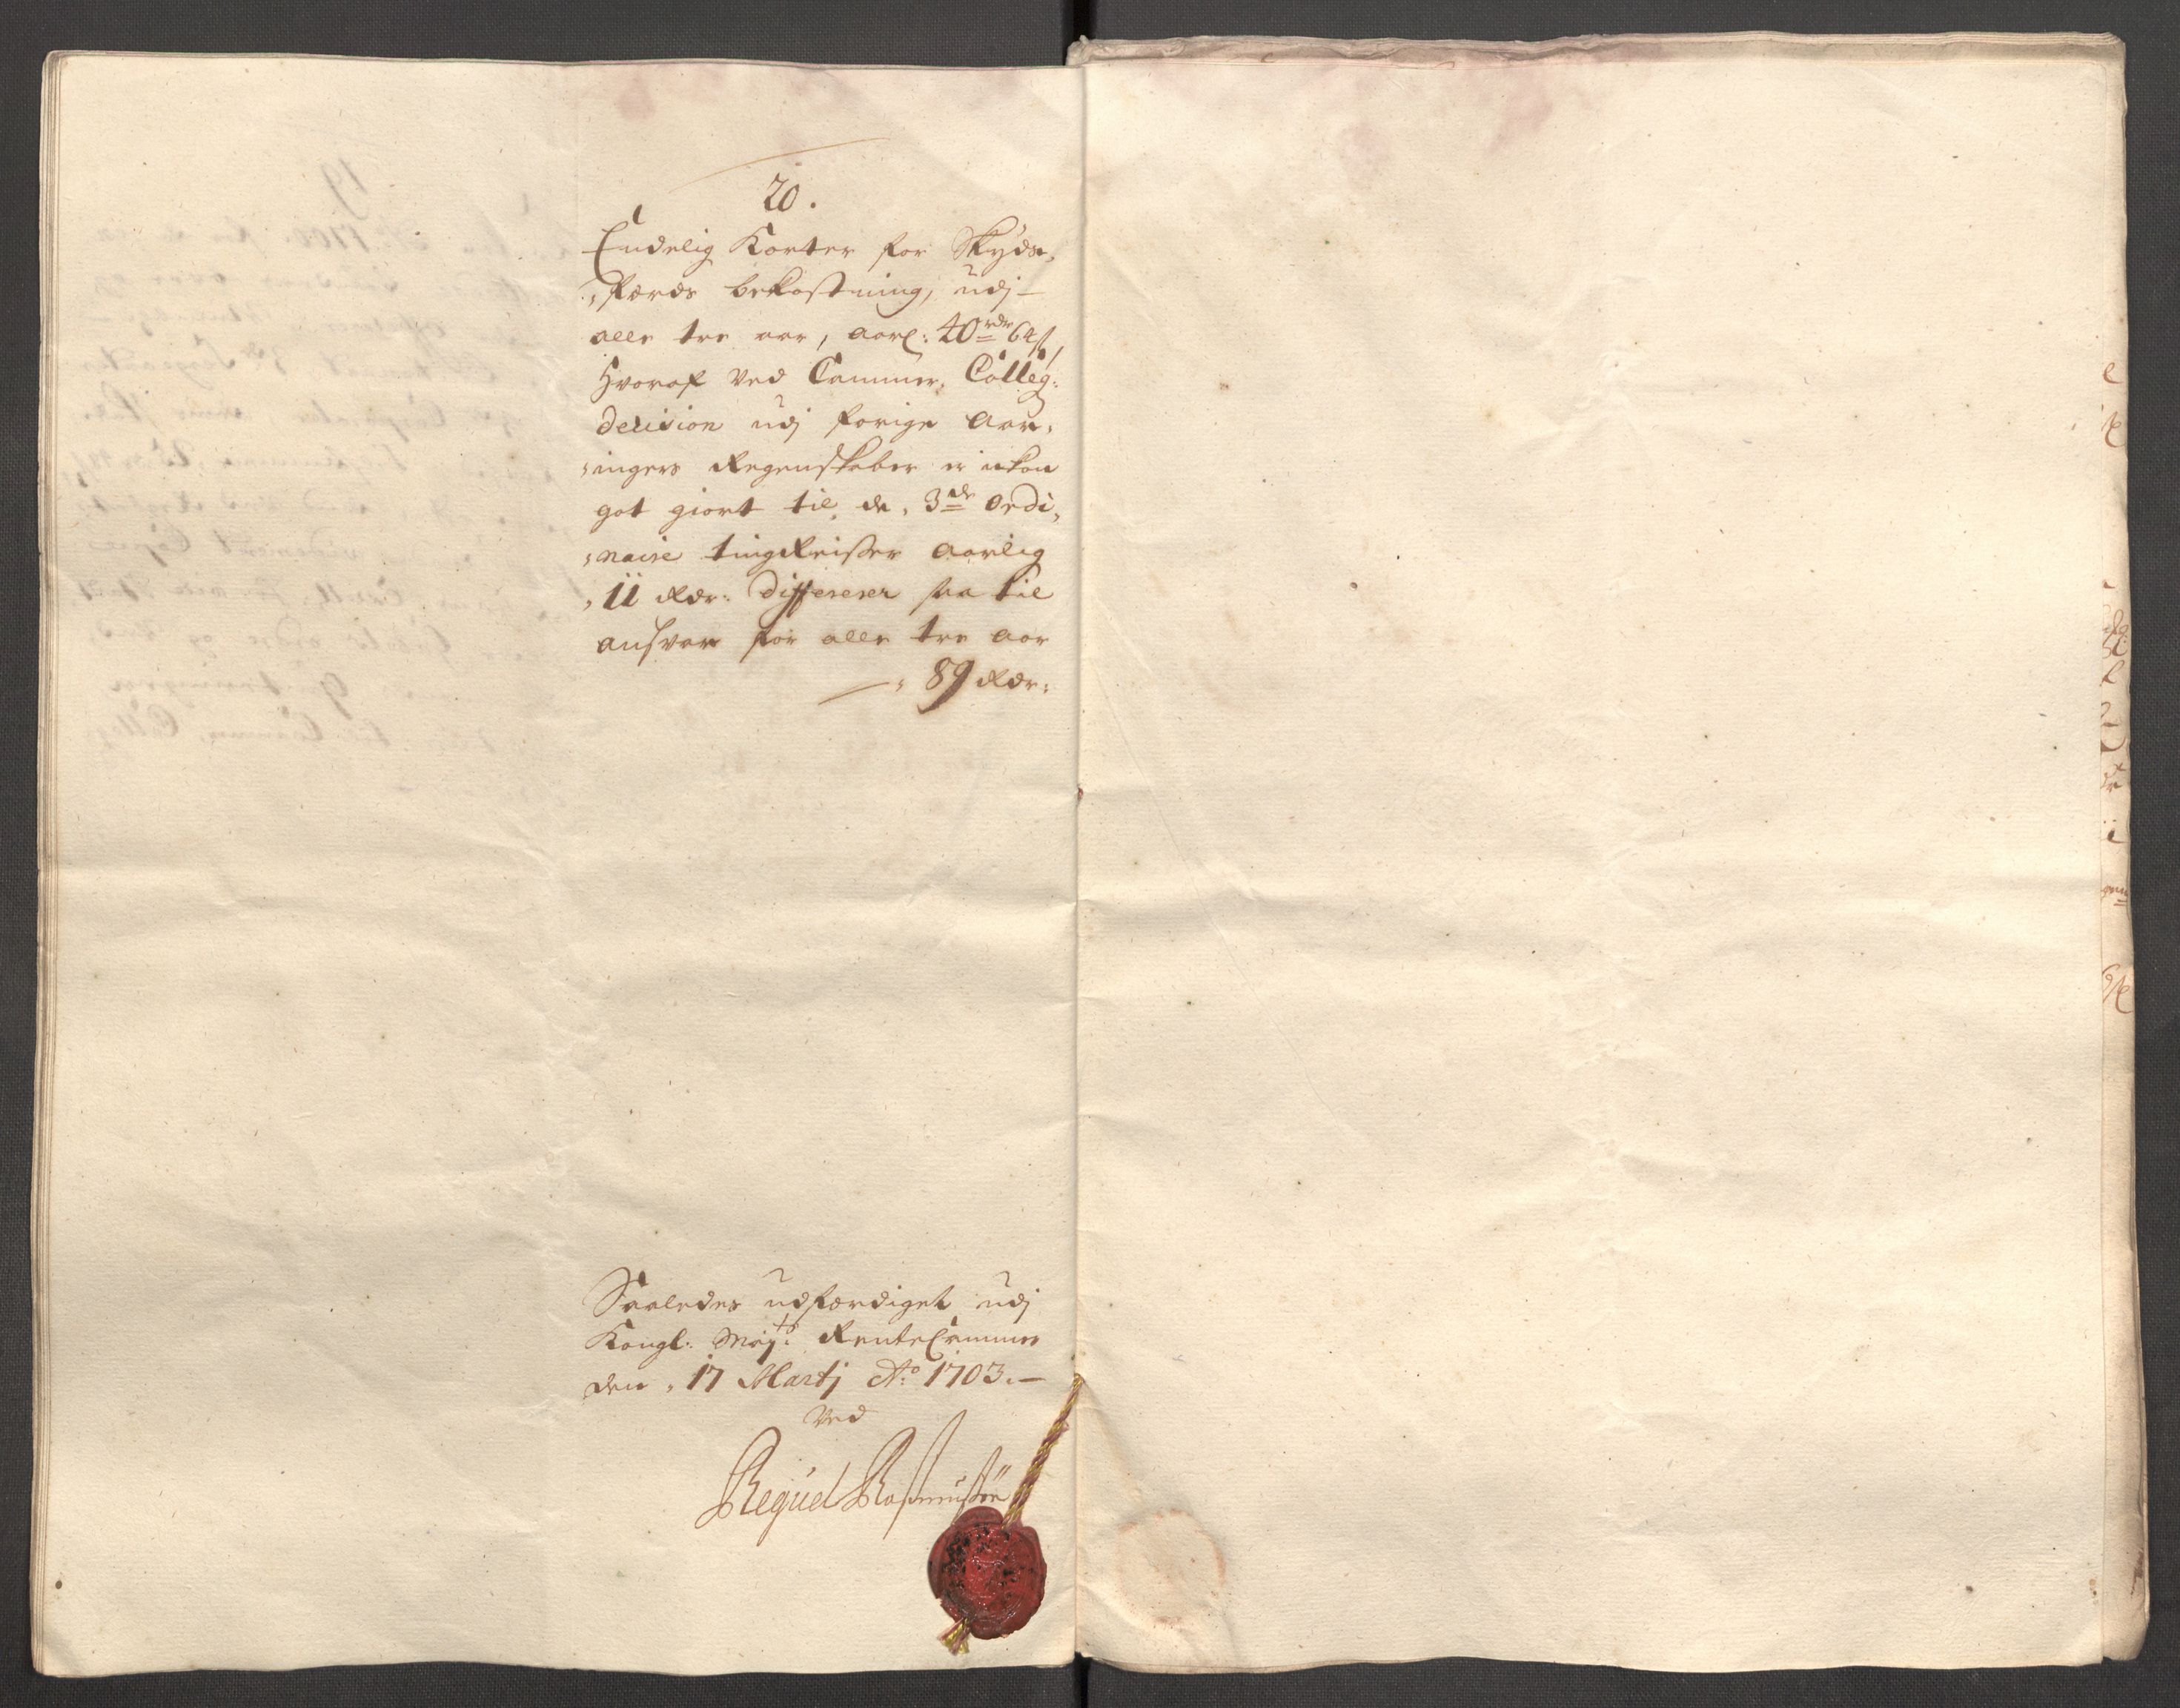 20.
Endelig Korter for Skyds-
færds bekostning, udj
alle tre aar, aarl: 40 rdr 64 s
hvoraf ved Cammer Colleg:
decision udj forige Aar-
ingers Regenskaber er ickon
got giort til de 3de ordi-
naire tingReisser aarlig
11 Rdr: differerer saa til
ansvar for alle tre aar
89 Rdr:
Saaledes udfærdiget udj
Kongl: Maj:ts RenteCammer
den 17 Martj Ao: 1703.
Ved
Reguel Rasmussøn